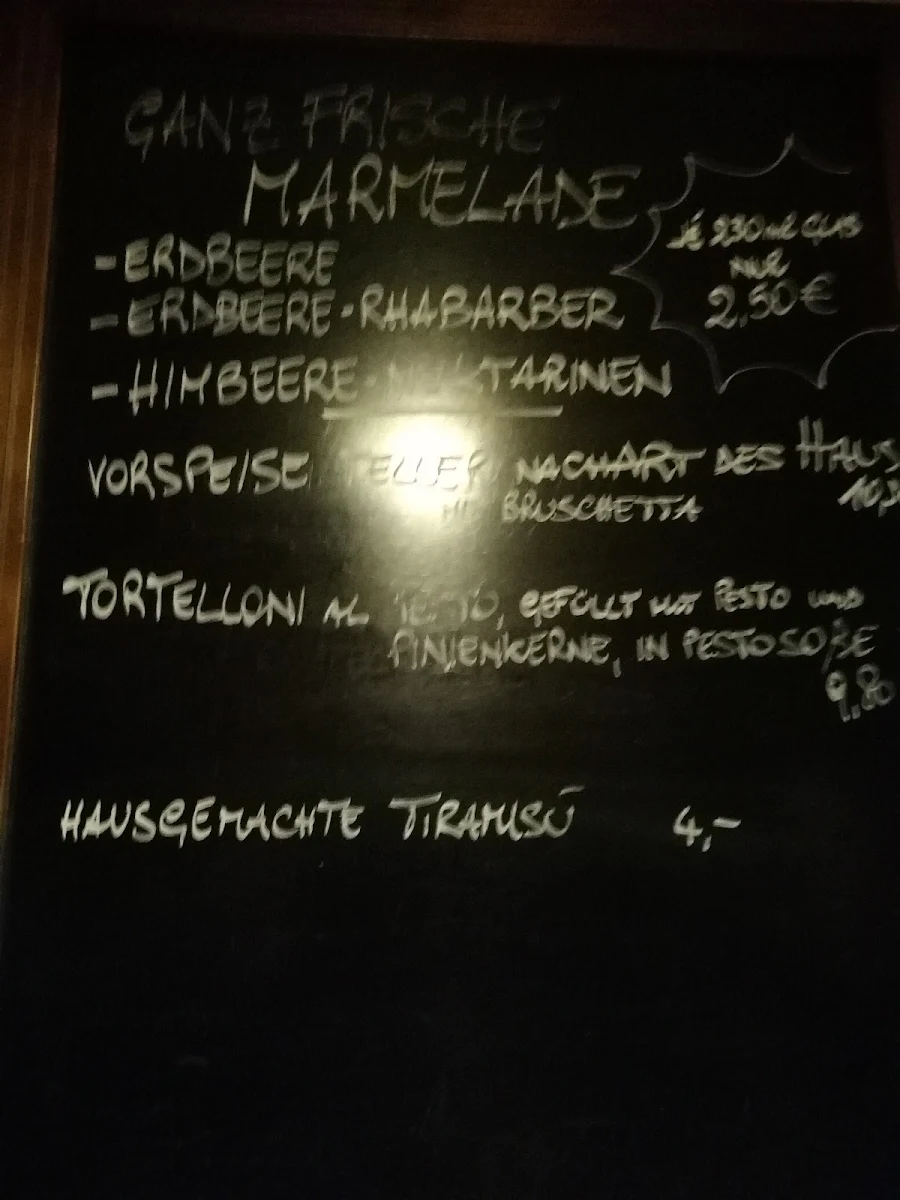 GANZ FRISCHE
MARMELADE
JE 230ml GLAS
NUR
2,50€
- ERDBEERE
- ERDBEERE-RHABARBER
- HIMBEERE-NEKTARINEN
VORSPEISE TELLER NACH ART DES HAUS
MIT BRUSCHETTA
TORTELLONI AL, GEFÜLLT MIT PESTO UND
PINIENKERNE, IN PESTOSOßE
9,80
HAUSGEMACHTE TIRAMISÚ 4,-